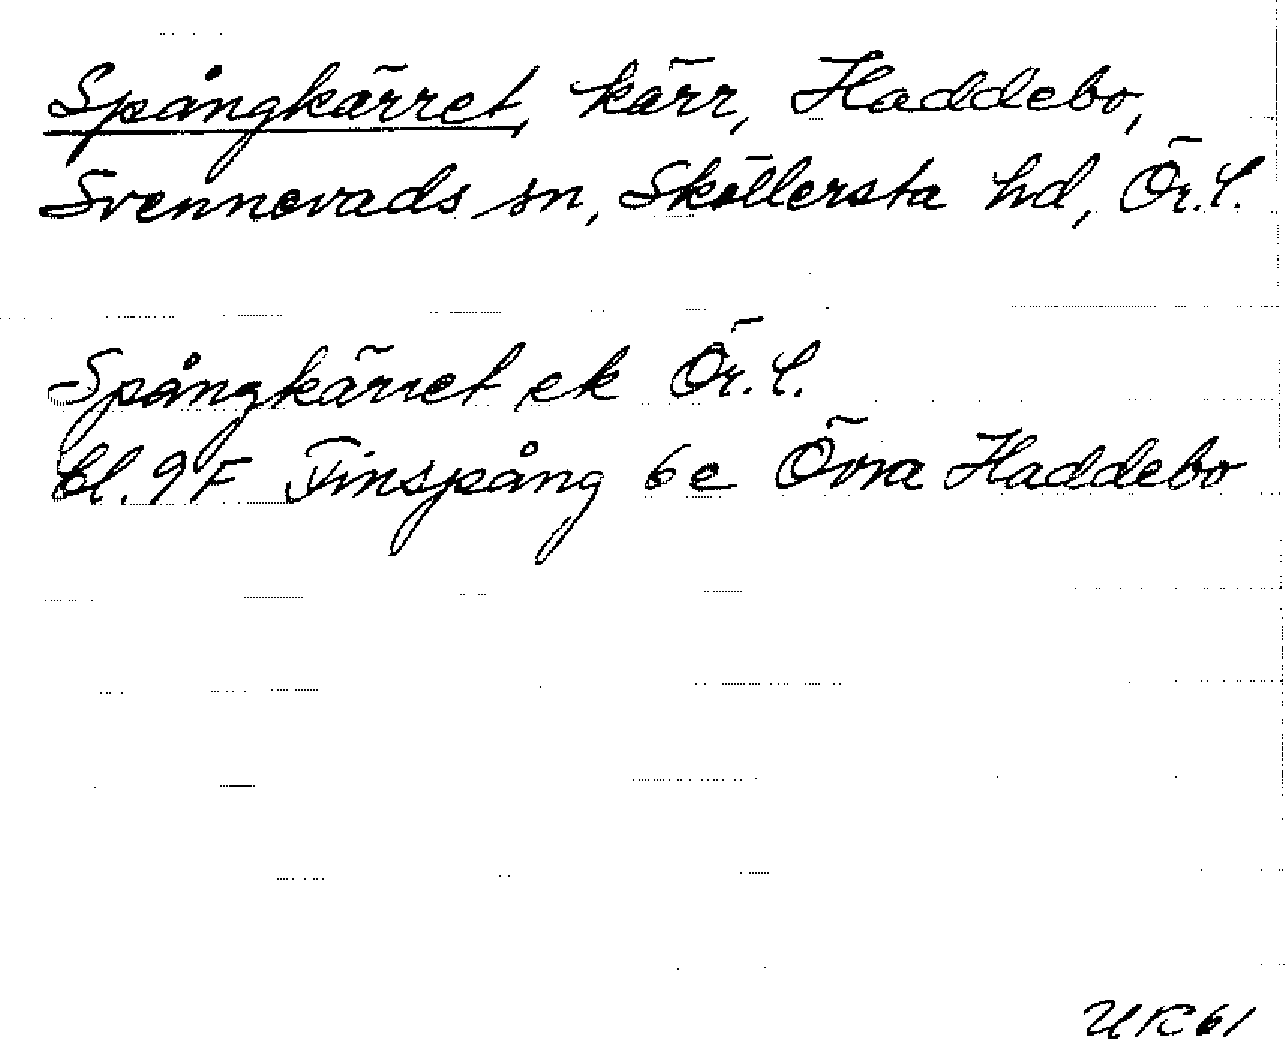 Spångkärret, kärr, Haddebo,
Svennevads sn, Sköllersta hd, Ör.l.
Spångkärret ek Ör.l.
bl. 9F Finspång 6e Övra Haddebo
UK61